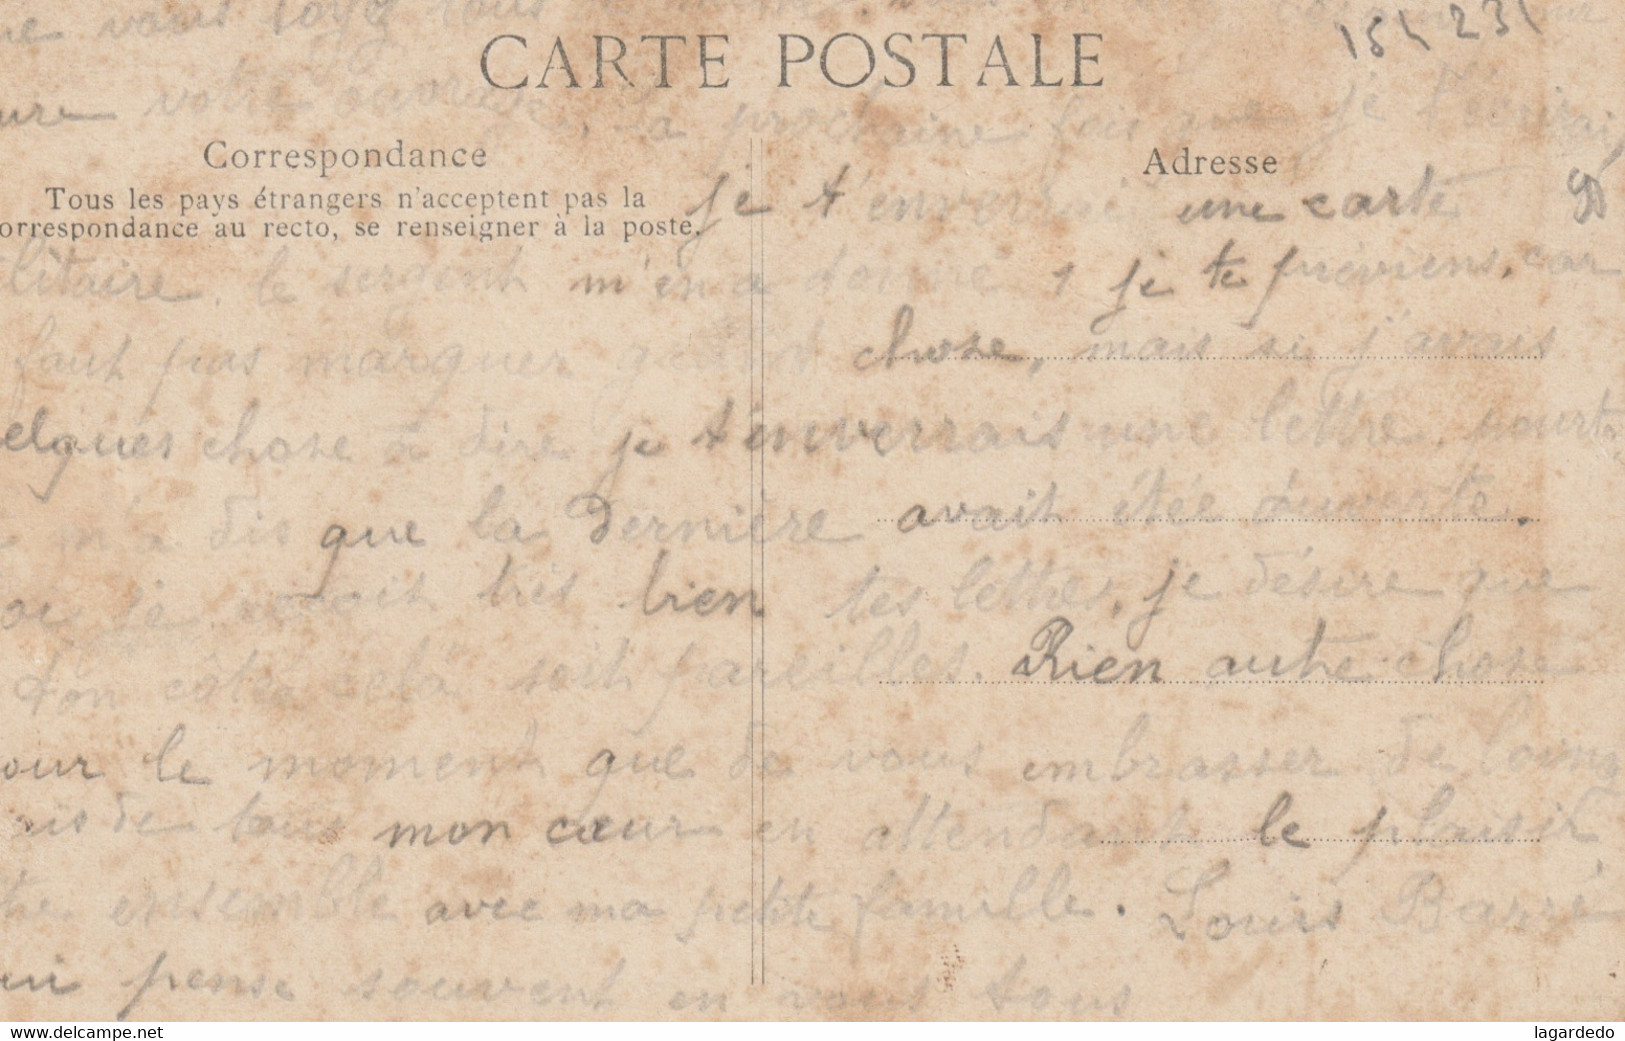 ne vous soyez tous de
15 1 231
CARTE POSTALE
votre ouvrage, la prochaine fois que je t'écrirai
Correspondance
Adresse
Tous les pays étrangers n'acceptent pas la
orrespondance au recto, se renseigner à la poste.
je t'enverrai une carte
litaire, le sergent m'en a donné 1 je te préviens, car
faut pas marquer grand chose, mais si j'avais
elques chose à dire je t'enverrais une lettre, pourt
m'a dis que la dernière avait étée ouverte.
ois je reçoit très bien tes lettres, je désire que
ton côté celà soit pareilles. Rien autre chose
our le moment que de vous embrasser de loing
is de tout mon cœur en attendant le plaisir
tre ensemble avec ma petite famille. Louis Barré
ui pense souvent en vous tous
https://www.delcampe.net
lagardedo